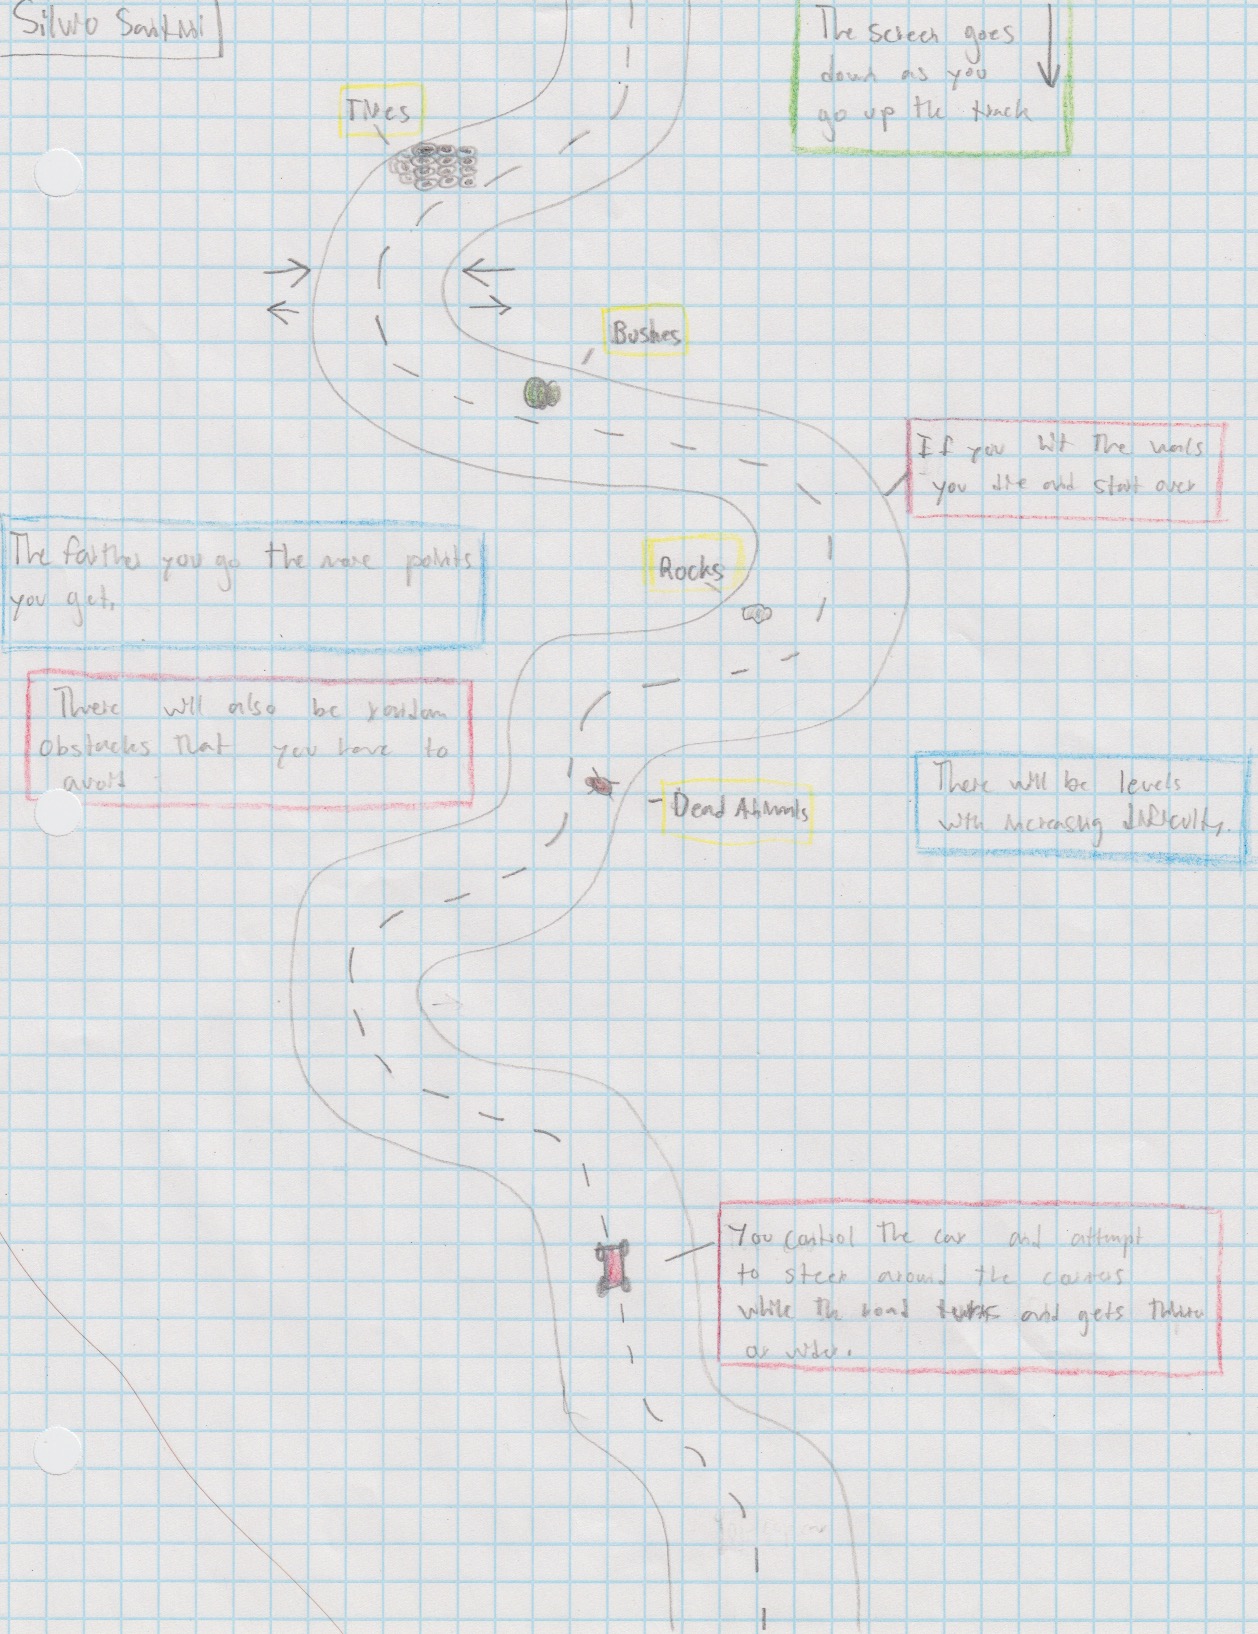 Silvio
The screen goes
down as you
go up the track
Tires
Bushes
If you hit the walls
you die and start over
The farther you go the more points
you get.
Rocks
There will also be random
obstacks that you have to
avoid
Dead Animals
There will be levels
with increasing difficulty.
You control the car and attempt
to steer around the corners
while the road turns and gets thinner
or wider.